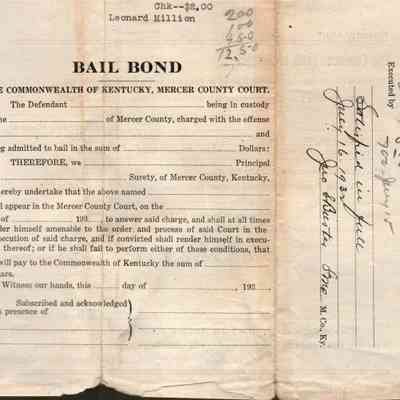 Chk--$8.00
Leonard Million
200
100
45.0
72,5.0
BAIL BOND
E COMMONWEALTH OF KENTUCKY, MERCER COUNTY COURT.
The Defendant being in custody
he of Mercer County, charged with the offense
and
ng admitted to bail in the sum of Dollars:
THEREFORE, we Principal
Surety, of Mercer County, Kentucky,
ereby undertake that the above named
l appear in the Mercer County Court, on the
of 193 to answer said charge, and shall at all times
der himself amenable to the order and process of said Court in the
ecution of said charge, and if convicted shall render himself in execu-
thereof; or if he shall fail to perform either of those conditions, that
will pay to the Commonwealth of Kentucky the sum of
ars.
Witness our hands, this day of , 193
Subscribed and acknowledged
s presence of
Executed by
Satisfied in full
July 16, 1932
M. Co., Ky.